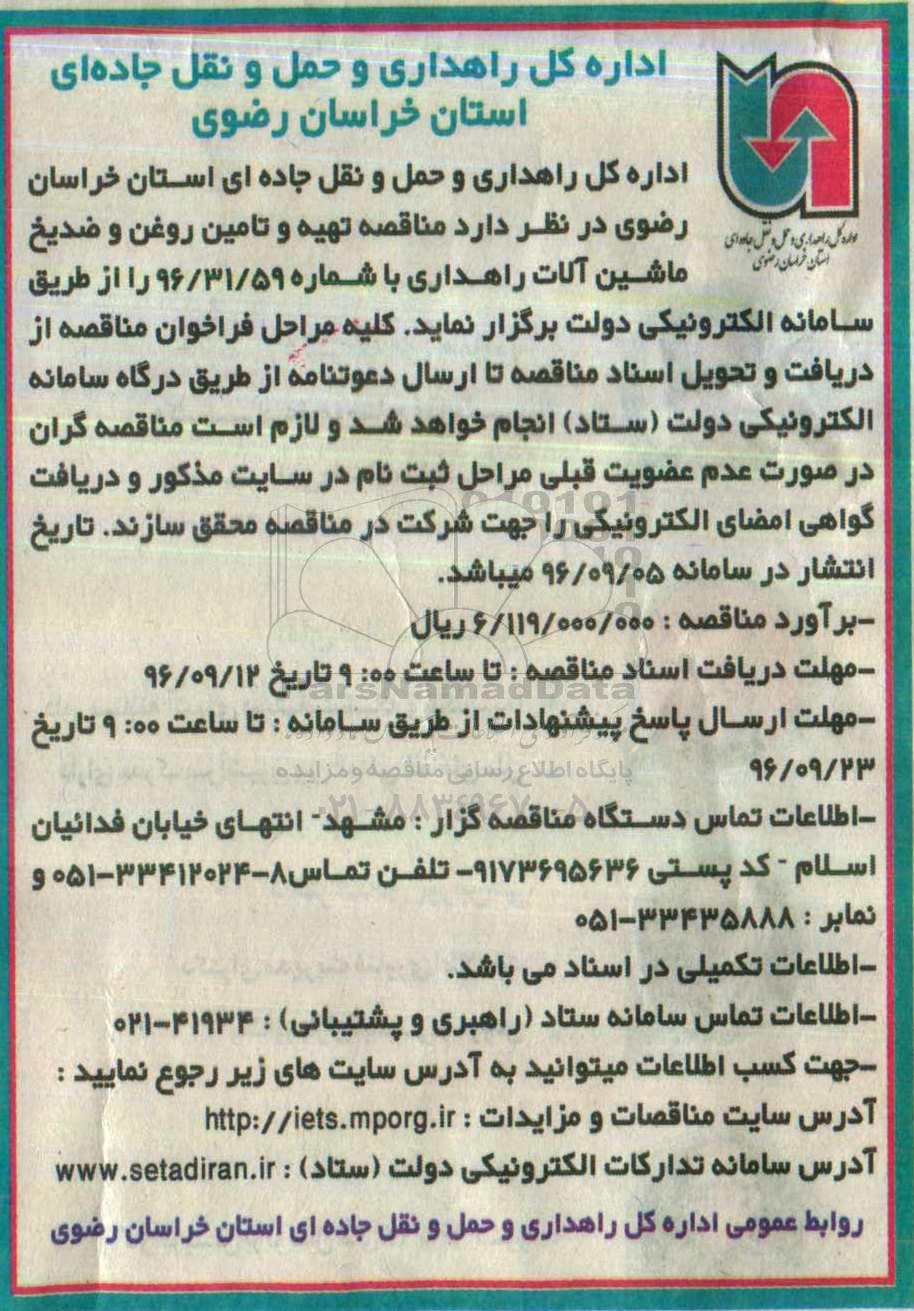 اداره کل راهداری و حمل و نقل جاده‌ای
استان خراسان رضوی
اداره کل راهداری و حمل و نقل جاده‌ای
استان خراسان رضوی
اداره کل راهداری و حمل و نقل جاده ای استان خراسان
رضوی در نظر دارد مناقصه تهیه و تامین روغن و ضدیخ
ماشین آلات راهداری با شماره ۹۶/۳۱/۵۹ را از طریق
سامانه الکترونیکی دولت برگزار نماید. کلیه مراحل فراخوان مناقصه از
دریافت و تحویل اسناد مناقصه تا ارسال دعوتنامه از طریق درگاه سامانه
الکترونیکی دولت (ستاد) انجام خواهد شد و لازم است مناقصه گران
در صورت عدم عضویت قبلی مراحل ثبت نام در سایت مذکور و دریافت
گواهی امضای الکترونیکی را جهت شرکت در مناقصه محقق سازند. تاریخ
انتشار در سامانه ۹۶/۰۹/۰۵ میباشد.
-برآورد مناقصه : ۶/۱۱۹/۰۰۰/۰۰۰ ریال
-مهلت دریافت اسناد مناقصه : تا ساعت ۰۰: ۹ تاریخ ۹۶/۰۹/۱۲
-مهلت ارسال پاسخ پیشنهادات از طریق سامانه : تا ساعت ۰۰: ۹ تاریخ
۹۶/۰۹/۲۳
ParsNamadData
پایگاه اطلاع رسانی مناقصه و مزایده
۰۲۱-۸۸۳۴۹۶۷۰-۵
-اطلاعات تماس دستگاه مناقصه گزار : مشهد- انتهای خیابان فدائیان
اسلام - کد پستی ۹۱۷۳۶۹۵۶۳۶- تلفن تماس۸-۳۳۴۱۲۰۲۴-۰۵۱ و
نمابر : ۳۳۴۳۵۸۸۸-۰۵۱
-اطلاعات تکمیلی در اسناد می باشد.
-اطلاعات تماس سامانه ستاد (راهبری و پشتیبانی) : ۴۱۹۳۴-۰۲۱
-جهت کسب اطلاعات میتوانید به آدرس سایت های زیر رجوع نمایید :
آدرس سایت مناقصات و مزایدات : http://iets.mporg.ir
آدرس سامانه تدارکات الکترونیکی دولت (ستاد) : www.setadiran.ir
روابط عمومی اداره کل راهداری و حمل و نقل جاده ای استان خراسان رضوی